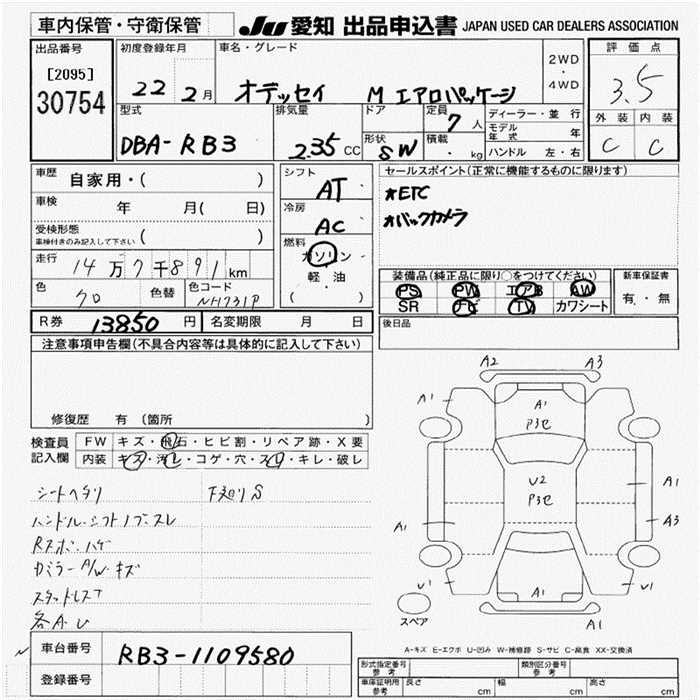 車内保管・守衛保管
JU 愛知 出品申込書 JAPAN USED CAR DEALERS ASSOCIATION
出品番号
[2095]
30754
初度登録年月
22 2月
車名・グレード
オデッセイ M エアロパッケージ
2WD
・
4WD
評価点
3.5
外装 内装
C C
型式
DBA-RB3
排気量
2.35 CC
ドア
形状
SW
定員
7 人
積載
kg
ディーラー・並行
モデル年式 年
ハンドル 左・右
車歴 自家用・( )
車検 年 月( 日)
受検形態
車検付きのみ記入して下さい ( )
走行 14万7千891km
色 クロ 色替
色コード
NH731P
シフト AT
冷房 AC
燃料
ガソリン
軽・油
( )
セールスポイント(正常に機能するものに限ります)
*ETC
*バックカメラ
装備品(純正品に限り○をつけてください)
PS PW エアB AW
SR ナビ TV カワシート
新車保証書
有・無
R券 13850 円 名変期限 月 日
後日品
注意事項申告欄(不具合内容等は具体的に記入して下さい)
修復歴 有 (箇所 )
検査員
記入欄
FW キズ・飛石・ヒビ割・リペア跡・X要
内装 キズ・汚レ・コゲ・穴・スレ・キレ・破レ
シートヘタリ 下廻りS
ハンドル・シフトノブ・スレ
カミラー A/W・キズ
スタッドレス
各A・U
車台番号 RB3-1109580
登録番号
A2 A3
A1
A1
P3セ
U2
P3セ
A1
A1
A1
A3
U1
U1
A1
A1
スペア
A-キズ E-エクボ U-凹み W-補修跡 S-サビ C-腐食 XX-交換済
形式指定番号
参考
類別区分番号
参考
車庫証明用
参考
長さ cm 幅 cm 高さ cm